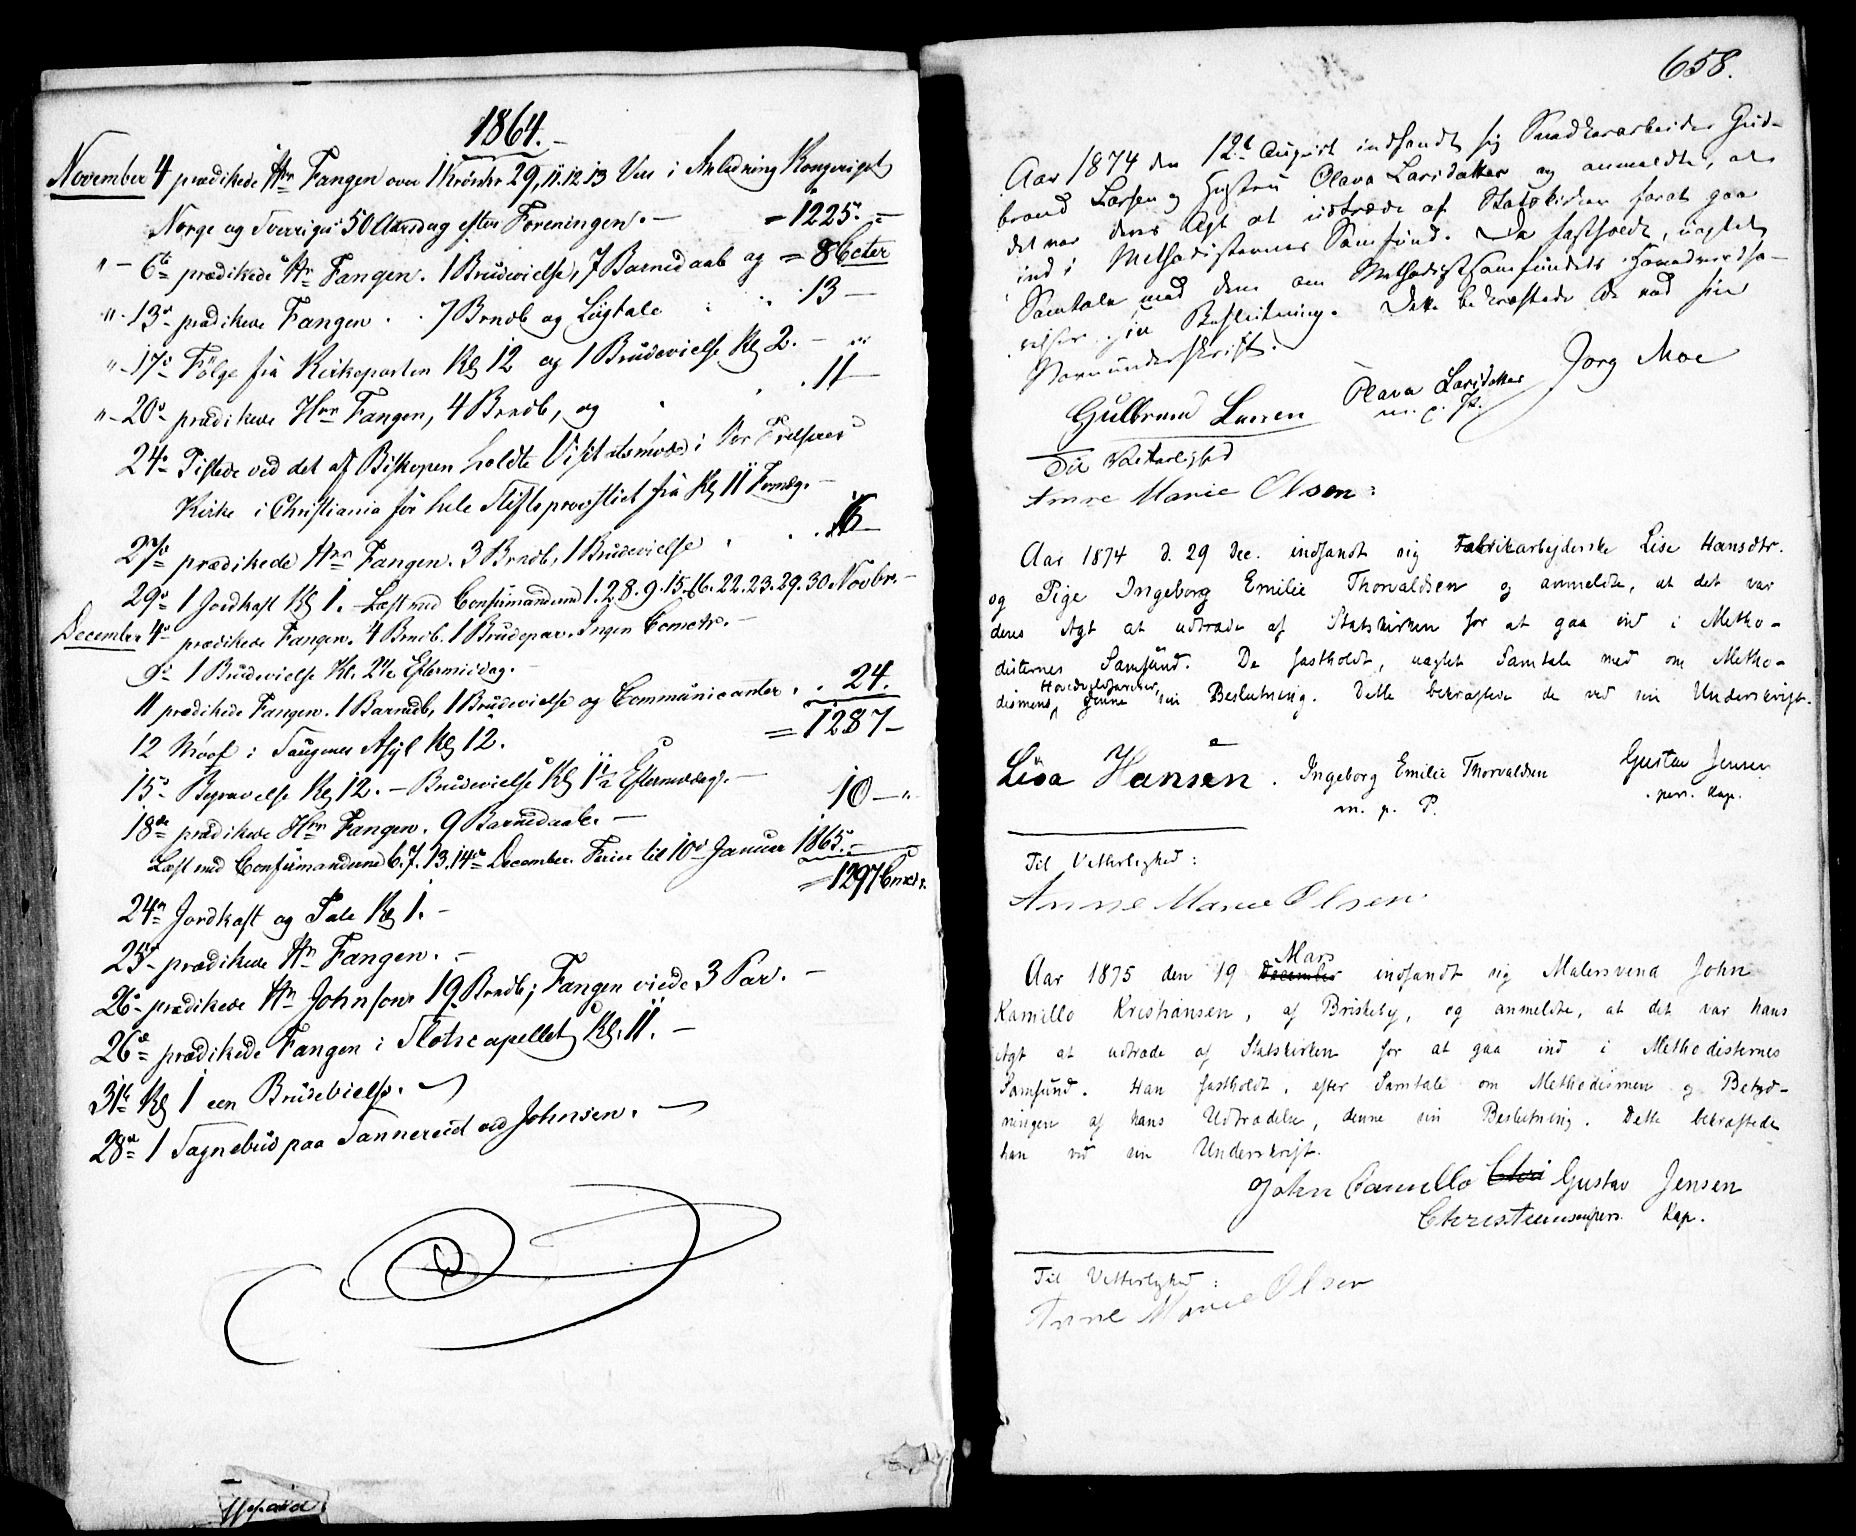 1864.
November 4 prædikede Hrr Fangen over 1 Krøniker 29, 11.12.13 Ver i Anledning Kongeriget
Norge og Sverriges 50 Aarsdag efter Foreningen. — = 1225. —
" - 6te prædikede Hr Fangen. 1 Brudevielse, 7 Barnedaab og = 8 Ceter
" - 13de prædikede Fangen . . 7 Brndb og Liigtale . . . 13 —
" - 17de Følge fra Kirkeporten Kl 12 og 1 Brudevielse Kl 2. — "
" - 20de prædikede Hrr Fangen, 4 Brndb, og . . . 11 —
24de Tilstede ved det af Biskopen holdte Visitatsmøde i Vor Frelsers
Kirke i Christiania for hele Stiftsprovstiet fra Kl 11 Formdg. —
27de prædikede Hrr Fangen. 3 Brndb, 1 Brudevielse . . . 16 —
29de 1 Jordkast Kl 1. Læst med Confirmanderne 1.2.8.9.15.16.22.23.29.30 Novbr. —
December 4de prædikede Fangen. 4 Brndb. 1 Brudepar. Ingen Comctr. —
9de 1 Brudevielse Kl. 2½ Eftermiddag. —
11 prædikede Fangen. 1 Barnedb, 1 Brudevielse og Communicanter . . 24.
= 1287 —
12 Møde i Saugenes Asyl Kl 12.
15de Begravelse Kl 12. — Brudevielse Kl 1½ Eftermiddag. —
18de prædikede Hrr Fangen. 9 Barnedaab. — 10 — "
Læst med Confirmanderne 6.7.13.14de December. Ferier til 10de Januar 1865. —
= 1297 Cmctr.
24de Jordkast og Tale Kl 1. —
25de prædikede Hr Fangen. —
26de prædikede Hr Johnson 19 Brndb; Fangen viede 3 Par. —
26de prædikede Fangen i Slotscapellet Kl. 11. —
31te Kl 1 een Brudevielse. —
28de 1 Sognebud paa Sannereid ved Johnsen. —
658.
Aar 1874 den 12t August indfandt sig Snedkerarbeider Gud-
brand Larsen og Hustru Olava Larsdatter og anmeldte, at
det var deres Agt at udtræde af Statskirken forat gaa
ind i Methodisternes Samfund. De fastholdt, uagtet
Samtale med dem om Methodistsamfundets Hovedvildfa-
relser, sin Beslutning. Dette bekræftede de ved sin
Navnunderskrift.
Gulbrand Larsen Olava Larsdatter Jørg Moe
m. p. P.
Til Vitterlighed
Anne Marie Olsen:
Aar 1874 d. 29 Dec. indfandt sig Fabrikarbejderske Lise Hansdtr.
og Pige Ingeborg Emilie Thorvaldsen og anmeldte, at det var
deres Agt at udtræde af Statskirken for at gaa ind i Metho-
disternes Samfund. De fastholdt, uagtet Samtale med om Metho-
dismens Hovedvildfarelser, denne sin Beslutning. Dette bekræftede de ved sin Underskrift.
Lisa Hansen. Ingeborg Emilie Thorvaldsen Gustav Jensen
m. p. P. pers. Kap.
Til Vitterlighed:
Anne Marie Olsen
Aar 1875 den 19 December Mars indfandt sig Malersvend John
Kamillo Kristiansen, af Briskeby, og anmeldte, at det var hans
Agt at udtræde af Statskirken for at gaa ind i Methodisternes
Samfund. Han fastholdt, efter Samtale om Methodismen og Betyd-
ningen af hans Udtrædelse, denne sin Beslutning. Dette bekræftede
han ved sin Underskrift.
John Camillo Chri Gustav Jensen
Christiansen pers. Kap.
Til Vitterlighed:
Anne Marie Olsen